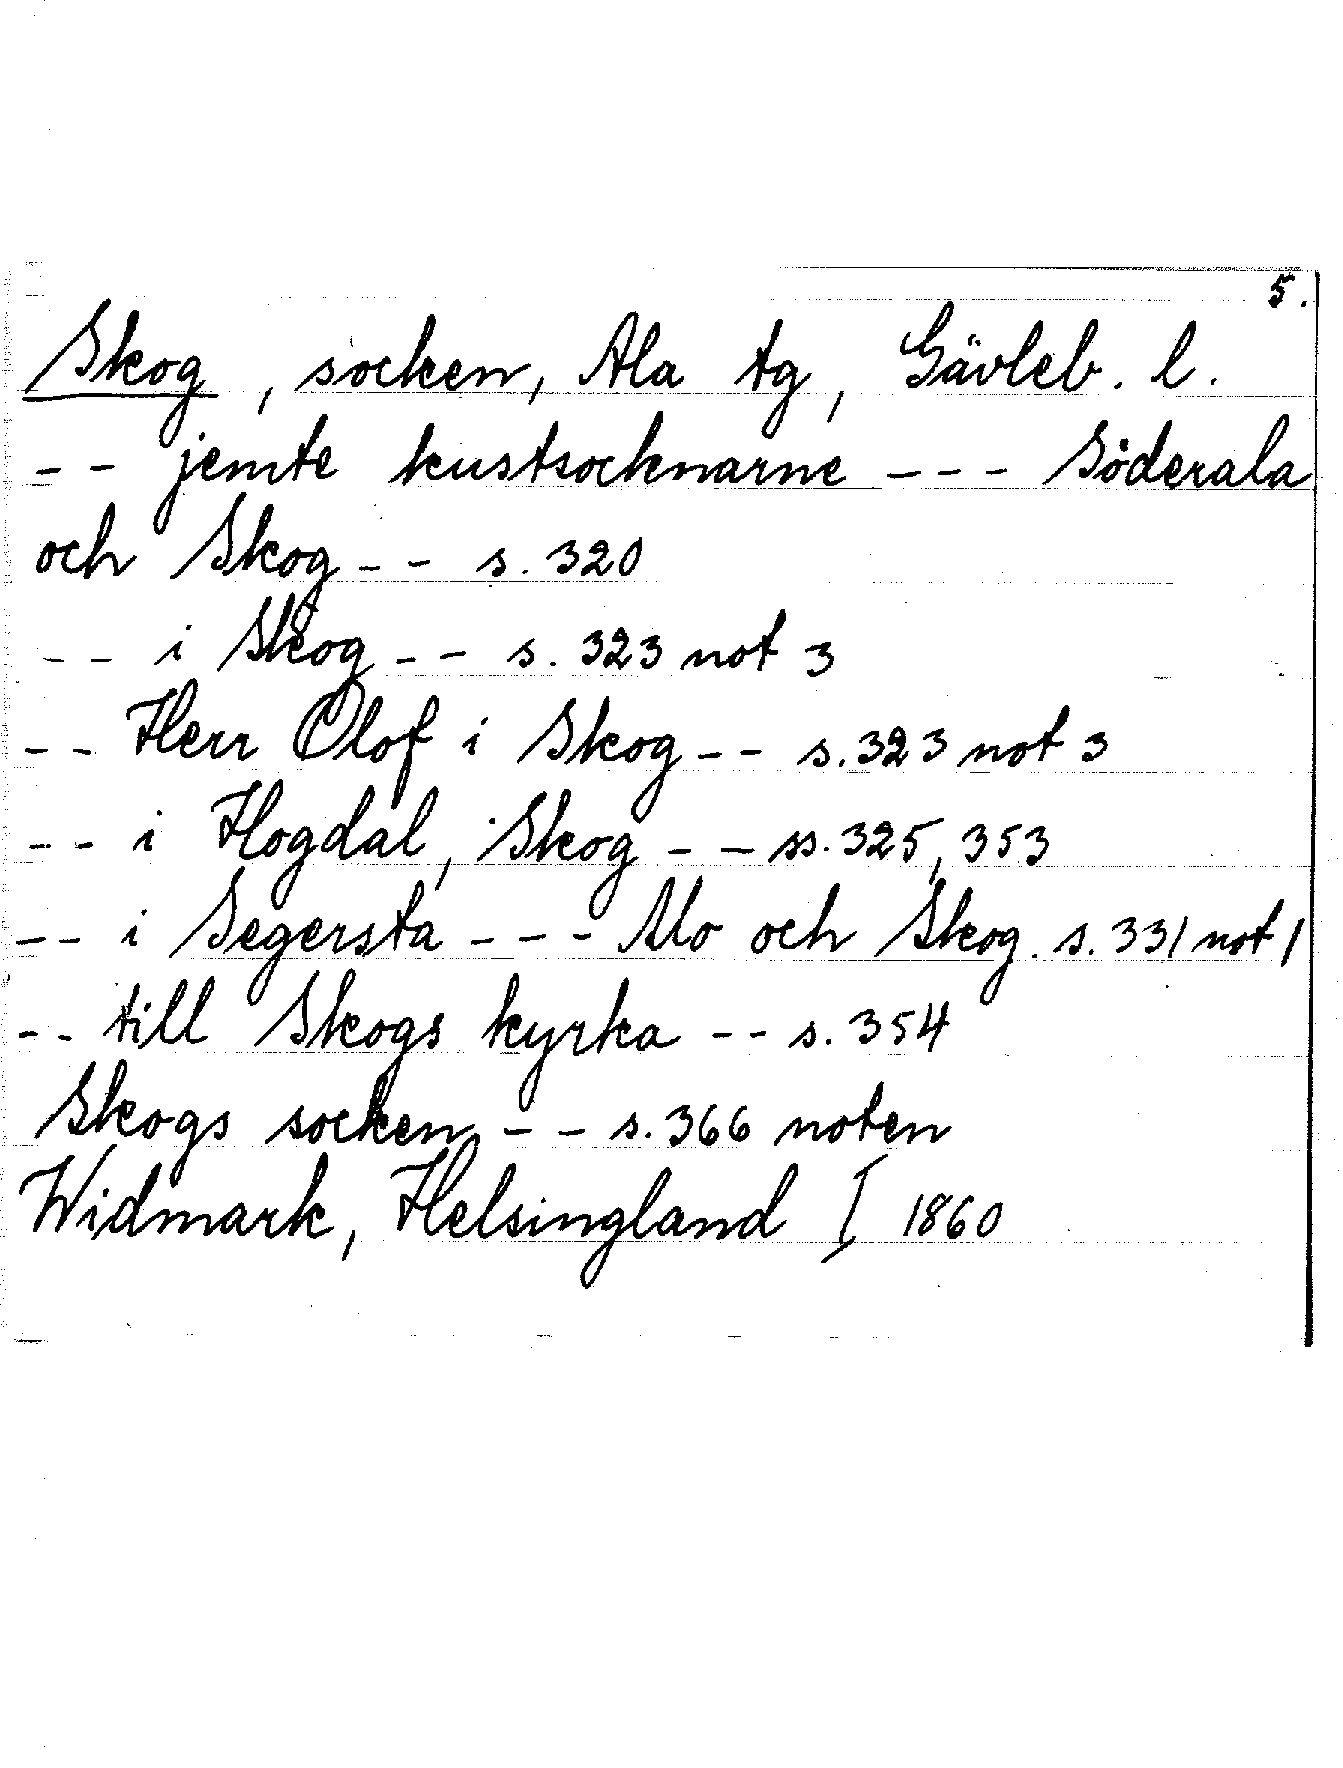 5.
Skog, socken, Ala tg, Gävleb. l.
-- jemte kustsocknarne --- Söderala
och Skog -- s. 320
-- i Skog -- s. 323 not 3
-- Herr Olof i Skog -- s. 323 not 3
-- i Hogdal, Skog -- ss. 325, 353
-- i Segersta --- Mo och Skog. s. 331 not 1
-- till Skogs kyrka -- s. 354
Skogs socken -- s. 366 noten
Widmark, Helsingland I 1860